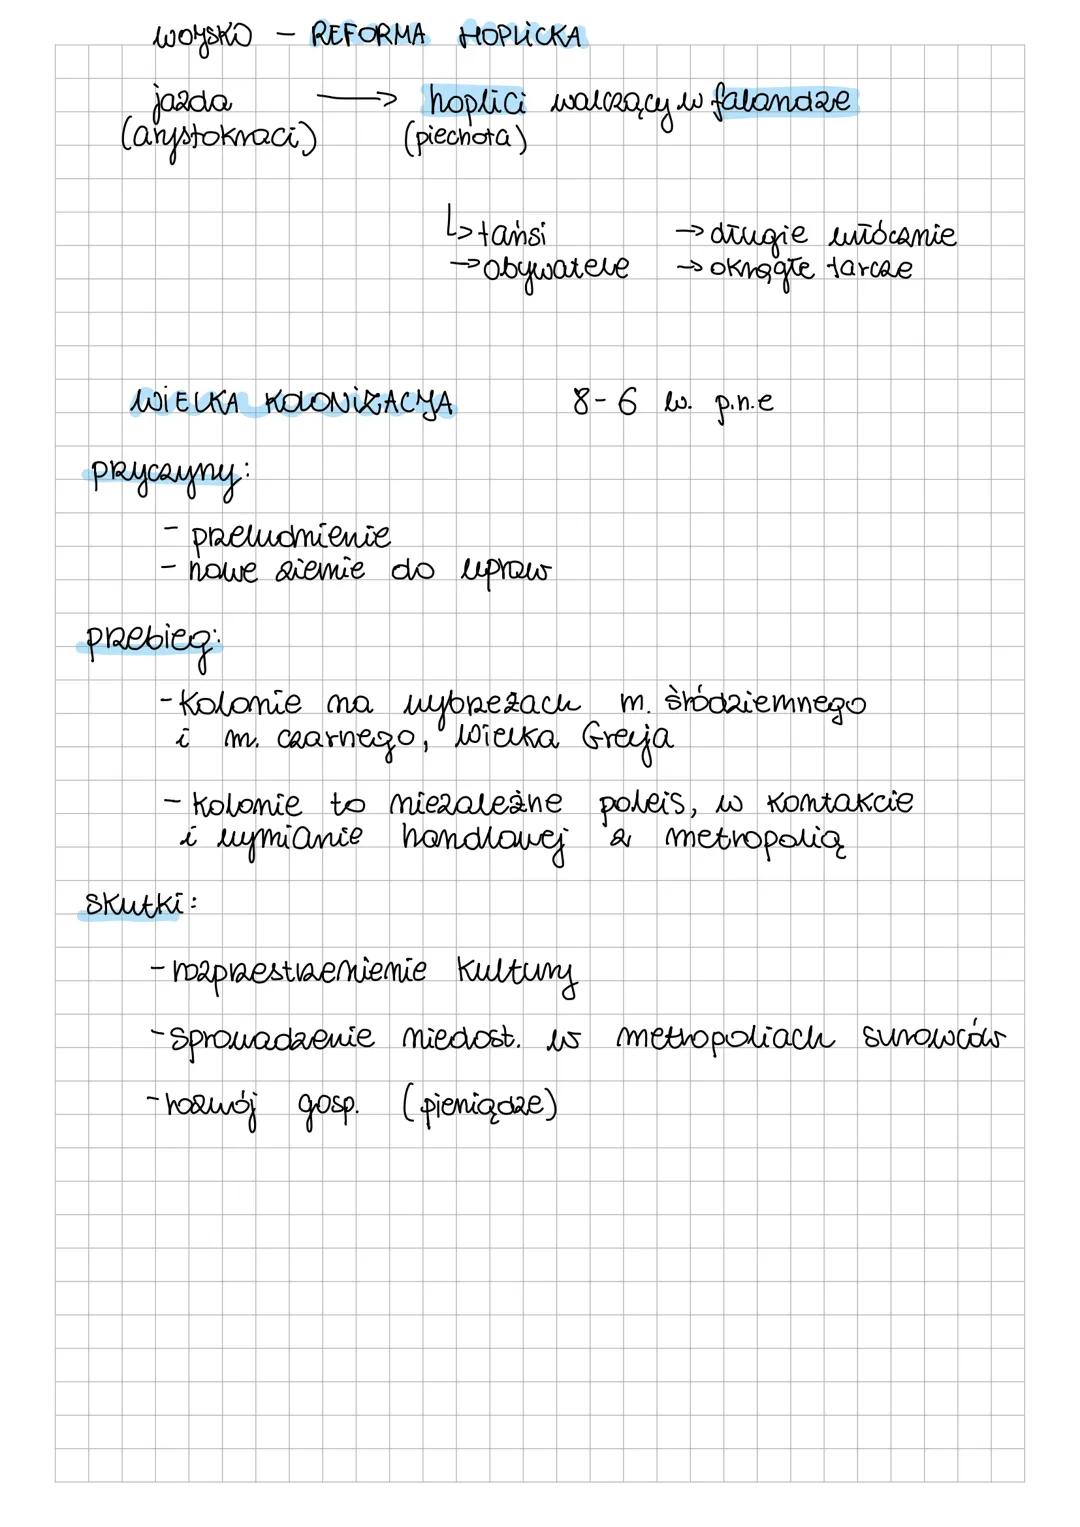 WOJSKO – REFORMA HOPLICKA
jazda → hoplici walczący w falandze
(arystokraci) (piechota)
↳ tańsi → długie włócznie
→ obywatele → okrągłe tarcze
WIELKA KOLONIZACJA 8-6 w. p.n.e
przyczyny:
- przeludnienie
- nowe ziemie do upraw
przebieg:
- kolonie na wybrzeżach m. śródziemnego
i m. czarnego, Wielka Grecja
- kolonie to niezależne poleis, w kontakcie
i wymianie handlowej z metropolią
skutki:
- rozprzestrzenienie kultury
- sprowadzenie niedost. w metropoliach surowców
- rozwój gosp. (pieniądze)